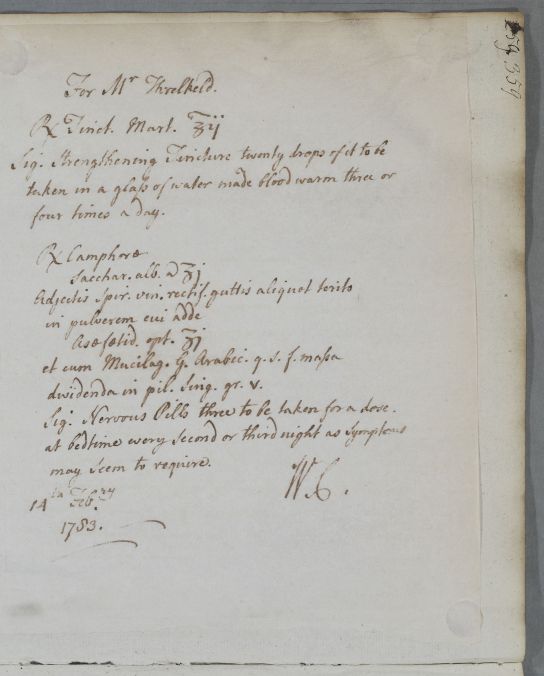 359
For Mr Threlkeld.
℞ Tinct. Mart. ℥ij
Sig. Strengthening Tincture twenty drops of it to be
taken in a glass of water made bloodwarm three or
four times a day.
℞ Camphoræ
Sacchar. alb. a ʒj
Adjectis Spir. vin. rectif. guttis aliquot terito
in pulverem cui adde
Asæfœtid. opt. ʒj
et cum Mucilag. G. Arabic. q. s. f. massa
dividenda in pil. sing. gr. v.
Sig. Nervous Pills three to be taken for a dose.
at bedtime every second or third night as symptoms
may seem to require.
W C.
14th Feb.ry
1783.